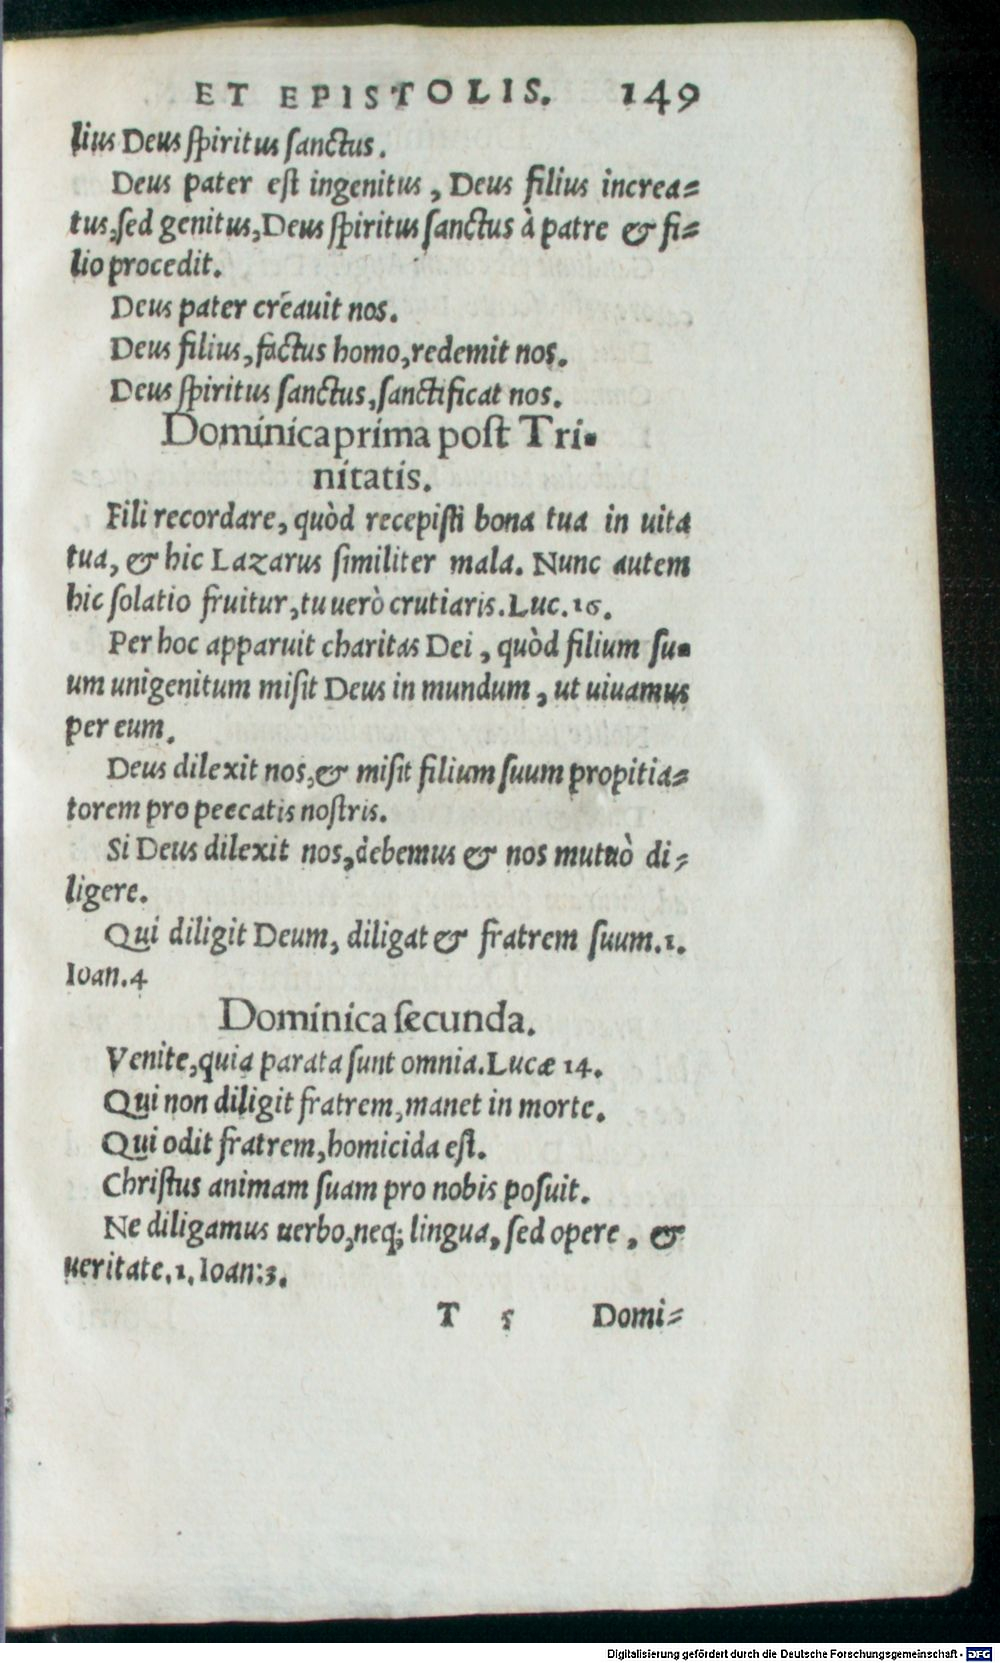 ET EPISTOLIS. 149
lius Deus ſpiritus ſanctus.
Deus pater eſt ingenitus, Deus filius increa⸗
tus, ſed genitus, Deus ſpiritus ſanctus à patre & fi⸗
lio procedit.
Deus pater creauit nos.
Deus filius, factus homo, redemit nos.
Deus ſpiritus ſanctus, ſanctificat nos.
Dominica prima poſt Tri-
nitatis.
Fili recordare, quòd recepiſti bona tua in uita
tua, & hic Lazarus ſimiliter mala. Nunc autem
hic ſolatio fruitur, tu uerò crutiaris. Luc. 16.
Per hoc apparuit charitas Dei, quòd filium ſu-
um unigenitum miſit Deus in mundum, ut uiuamus
per eum.
Deus dilexit nos, & miſit filium ſuum propitia⸗
torem pro peccatis noſtris.
Si Deus dilexit nos, debemus & nos mutuò di⸗
ligere.
Qui diligit Deum, diligat & fratrem ſuum. 1.
Ioan. 4
Dominica ſecunda.
Venite, quia parata ſunt omnia. Lucæ 14.
Qui non diligit fratrem, manet in morte.
Qui odit fratrem, homicida eſt.
Chriſtus animam ſuam pro nobis poſuit.
Ne diligamus uerbo, neq; lingua, ſed opere, &
ueritate. 1. Ioan: 3.
T 5 Domi⸗
Digitalisierung gefördert durch die Deutsche Forschungsgemeinschaft - DFG